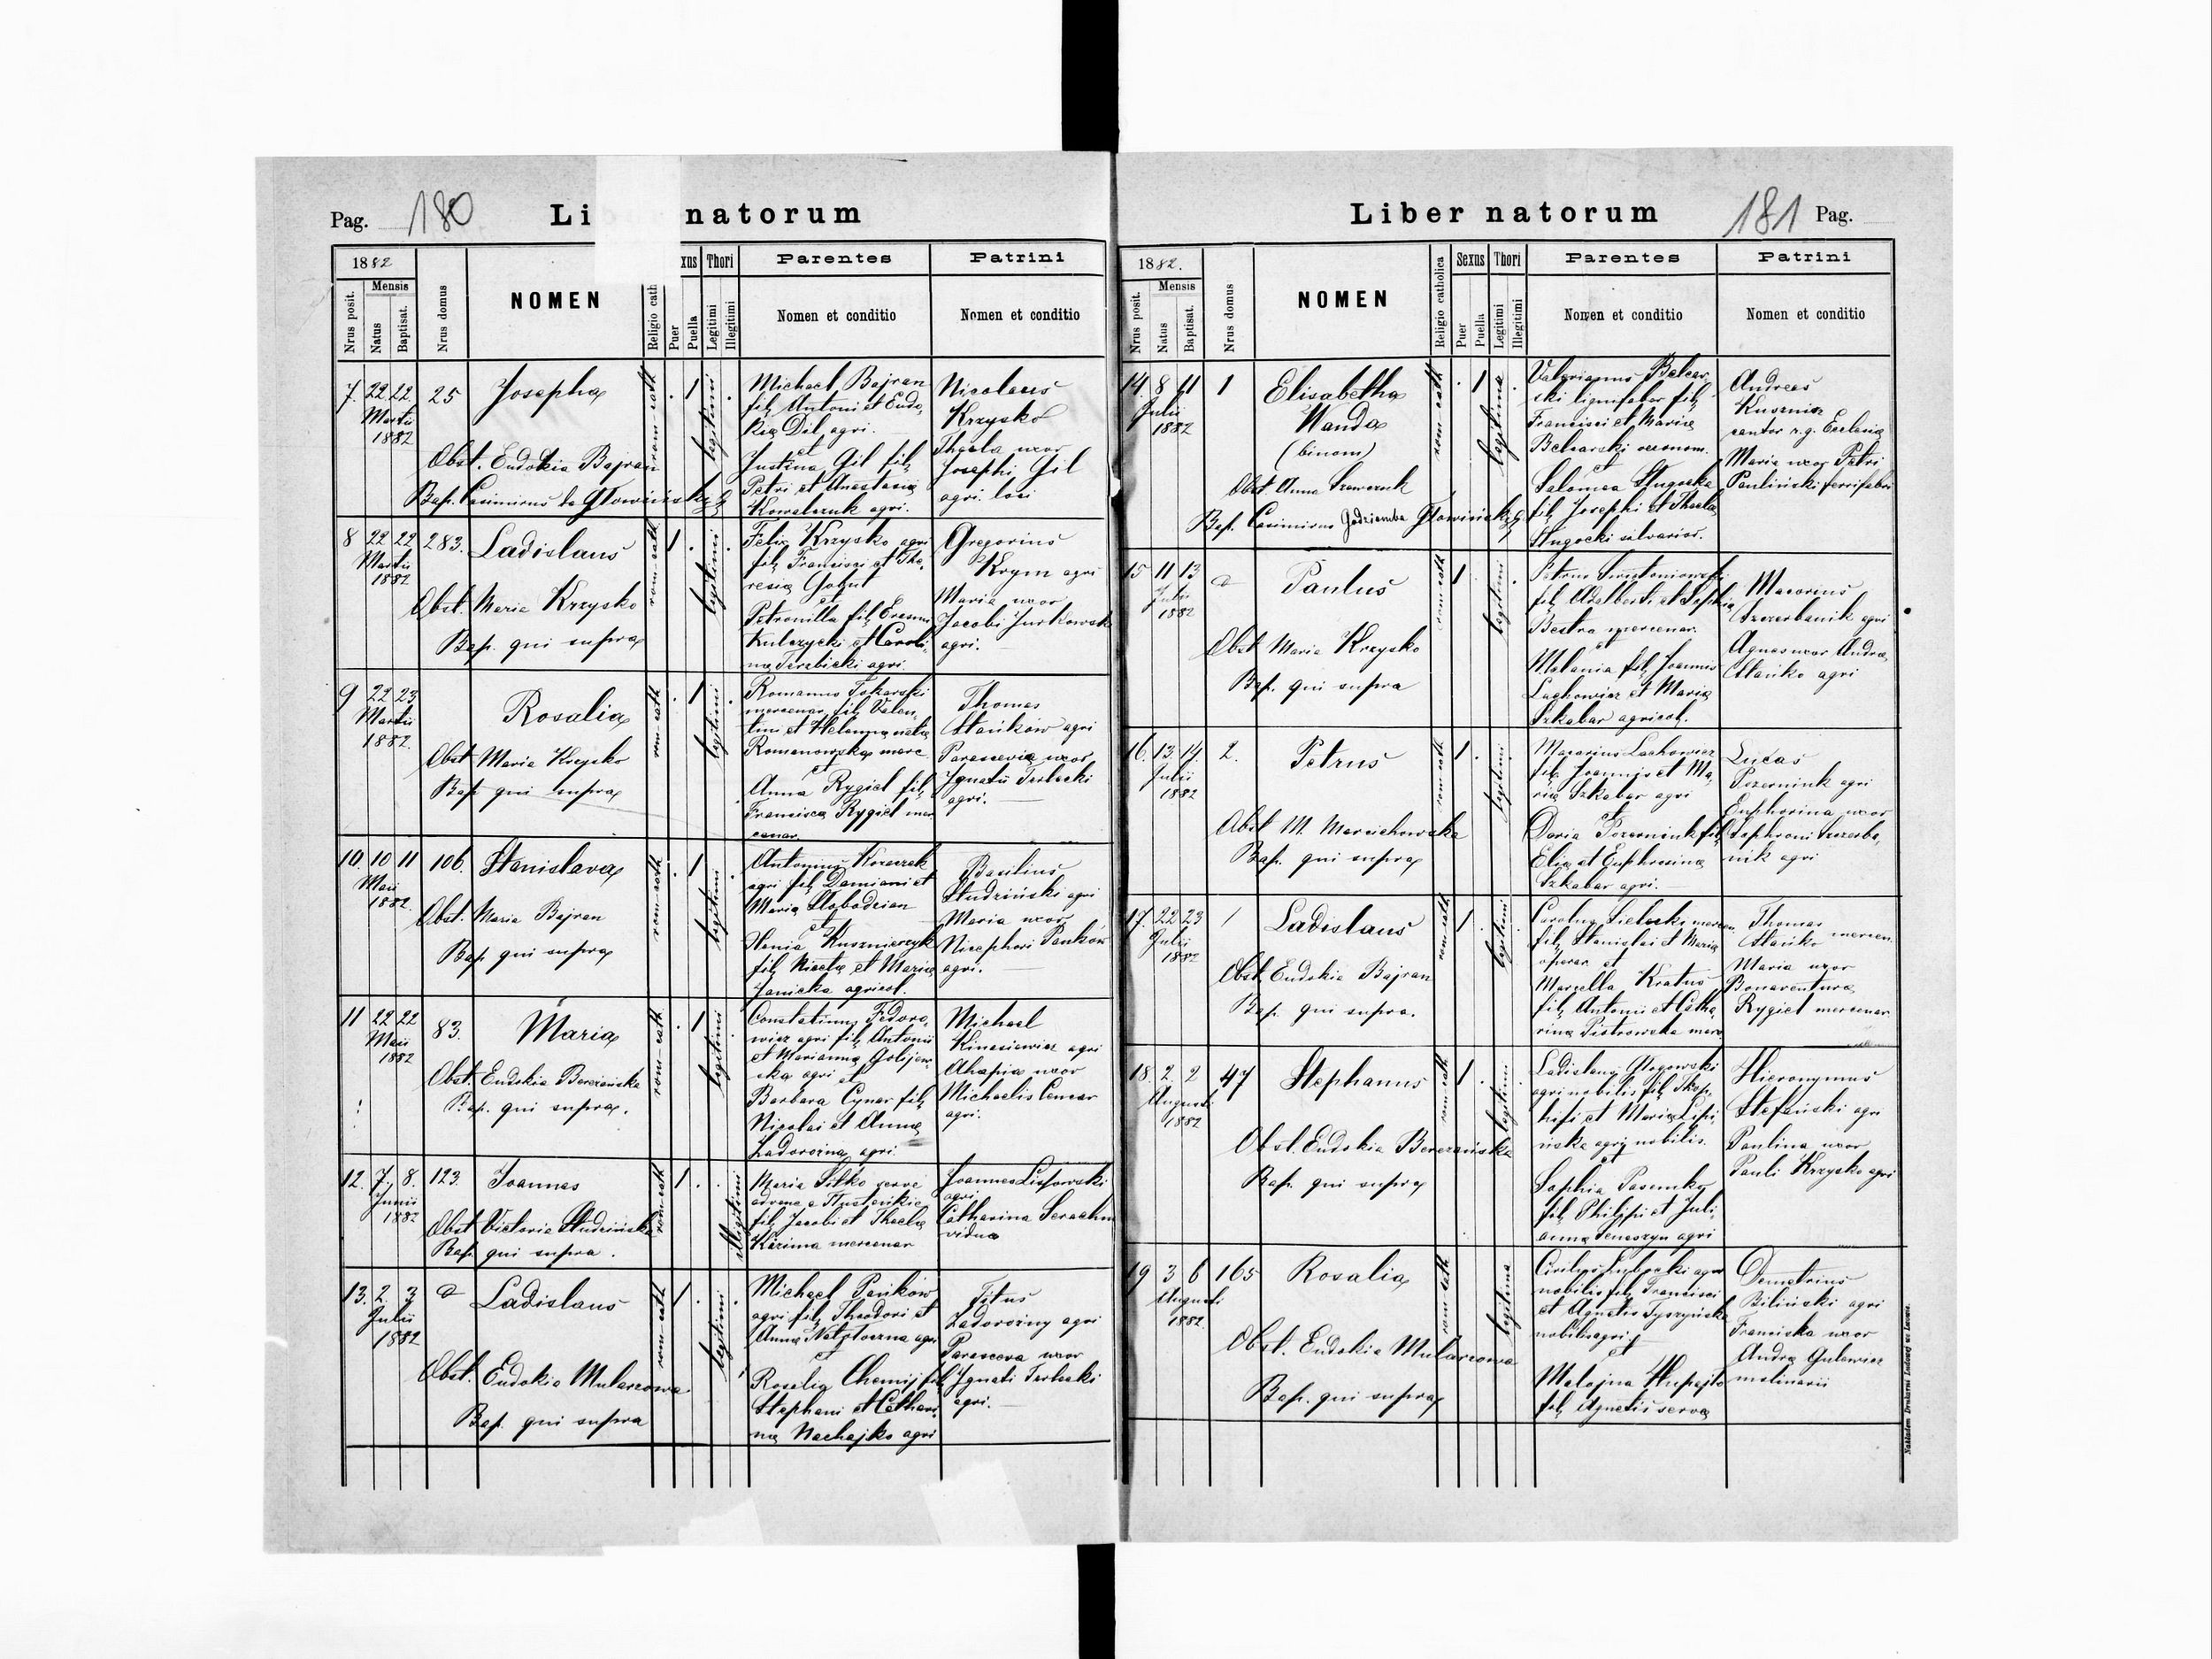 Pag. 180
Li natorum
1882
Mensis
Nrus posit.
Natus
Baptisat.
Nrus domus
NOMEN
Religio cath
xus
Puer
Puella
Thori
Legitimi
Illegitimi
Parentes
Nomen et conditio
Patrini
Nomen et conditio
7. 22 22 25 Josepha
Martii
1882
Obst. Eudokia Bajran
Bap. Casimirus de Głowiński
rom-cath
1
legitimi
Michael Bajran
fil. Antoni et Eudo,
kia Dil agri.
et
Justina Gil fil,
Petri et Anastasia
Kowalczuk agri.
Nicolaus
Krzysko
Thecla uxor
Josephi Gil
agri. loci
8 22 22 283. Ladislaus
Martii
1882
Obst. Maria Krzysko
Bap. qui supra
rom-cath
1
legitimi
Felix Krzysko agri
fil, Francisci et The,
resia
et
Petronilla fil,
Kulczycki et Caroli,
na agri.
Gregorius
Krym agri
Maria uxor
Jacobi Jurkowski
agri.
9 22 23 Rosalia
Martii
1882.
Obst Maria Krzysko
Bap qui supra
rom-cath
1
legitimi
Romanus Tokarski
mercenar. fil, Valen,
tini et Helenna nata
Romanowska merc
et
Anna Rygiel fil,
Francisca Rygiel mer
cenar.
Thomas
Stańków agri
Parascevia uxor
Ignatii Terlecki
agri.
10. 10 11 106. Stanislava
Maii
1882.
Obst. Maria Bajran
Bap qui supra
rom-cath
1
legitimi
Antonius
agri fil, Damiani et
Maria Slobodzian
et
Xenia Kusznierczyk
fil, Nicetae et Maria
Janicka agricol.
Basilius
Studziński agri
Maria uxor
Nicephori Pańków
agri.
11 22 22 83. Maria
Maii
1882
Obst. Eudokia Bereżańska
Bap. qui supra.
rom-cath
1
legitimi
Constatinus Fedoro,
wicz agri fil, Antonii
et Marianna
ska agri et
Barbara Cynar fil,
Nicolai et Anna
Zadorożna agri.
Michael
Kinasiewicz agri
Ahapia uxor
Michaelis
agri.
12. 7. 8. 123. Joannes
Junii
1882
Obst Victoria Studzińska
Bap. qui supra.
rom-cath
1
illegitimi
Maria Sitko serva
advena e
fil, Jacobi et Thecla
mercenar
Joannes Lisowski
agri.
Catharina
vidua
13. 2. 3 Ladislaus
Julii
1882
Obst. Eudokia Mularzowa
Bap. qui supra
rom-cath
1
legitimi
Michael Pańków
agri fil, Theodori et
Anna agri
et
Rosalia Chomij fil,
Stephani et Cathari,
na Nachajko agri
Titus
Zadorożny agri
Parasceva uxor
Ignati Terlecki
agri.
Liber natorum
181 Pag.
1882.
Mensis
Nrus posit.
Natus
Baptisat.
Nrus domus
NOMEN
Religio catholica
Sexus
Puer
Puella
Thori
Legitimi
Illegitimi
Parentes
Nomen et conditio
Patrini
Nomen et conditio
14. 8 11 1 Elisabetha
Julii
1882
Wanda
(binom)
Obst. Anna Szewczuk
Bap. Casimirus Godziemba Głowiński
rom-cath
1
legitima
Valerianus Belzar,
ski lignifaber fil,
Francisci et Maria
Belzarski oeconom.
et
Salomea Długocka
fil, Josephi et Thecla
Długocki silvarior.
Andreas
Kuszniar
cantor r.g. Ecclesia
Maria uxor Petri
Pauliński ferrifabri
15 11 13 Paulus
Julii
1882
Obst Maria Krzysko
Bap. qui supra
rom-cath
1
legitimi
Petrus
fil, Adalberti et Sophia
Bestra mercenar.
et
Melania fil, Joannis
Lachowicz et Maria
Szkabar agricol.
Macarius
Szczerbanik agri
Agnes uxor Andrea,
Stańko agri
16. 13 14. 2. Petrus
Julii
1882
Obst M. Marcichowska
Bap. qui supra
rom-cath
1
legitimi
Macarius Lachowicz
fil, Joannis et Ma,
ria Szkabar agri
et
Daria fil,
Elia et Euphrosina
Szkabar agri.
Lucas
agri
uxor
Sophroni Szczerba,
nik agri
17. 22 23 1 Ladislaus
Julii
1882
Obst. Eudokia Bajran
Bap. qui supra.
rom-cath
1
legitimi
Carolus Sielecki mercen.
fil, Stanislai et Maria
operar et
Marcella Kratus
fil, Antonii et Catha,
rina Piotrowska merc
Thomas
Stańko mercen.
Maria uxor
Bonaventura
Rygiel mercenar.
18. 2. 2 47 Stephanus
Augusti
1882
Obst. Eudokia Bereżańska
Bap. qui supra
rom-cath
1
legitimi
Ladislaus Głogowski
agri nobilis fil, Theop,
hili et Maria Lipi,
ńska agri nobilis.
et
Sophia Pasemko
fil, Philippi et Juli,
anna agri
Hieronymus
Stefański agri
Paulina uxor
Pauli Krzysko agri
19 3 6 165 Rosalia
Augusti
1882.
Obst. Eudokia Mularzowa
Bap. qui supra
rom-cath
legitima
agri
nobilis fil, Francisci
et Agnetis Tyszyńska
nobilis agri
et
Malajna
fil, Agnetis serva
Demetrius
Biliński agri
Franciska uxor
Andrea Gulewicz
molinarii
Nakładem Drukarni Ludowej we Lwowie.